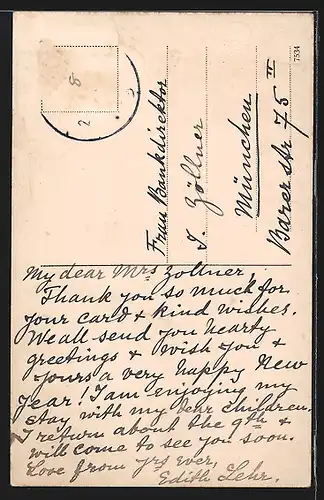 My dear Mrs Zollner,
Thank you so much for
your card & kind wishes.
We all send you hearty
greetings & wish you &
yours a very happy New
Year! I am enjoying my
stay with my dear children.
I return about the 9th &
will come to see you soon.
Love from yrs ever,
Edith Lehr.
Frau Bankdirektor
J. Zöllner
München
Barer str 75 II
7534
8
2